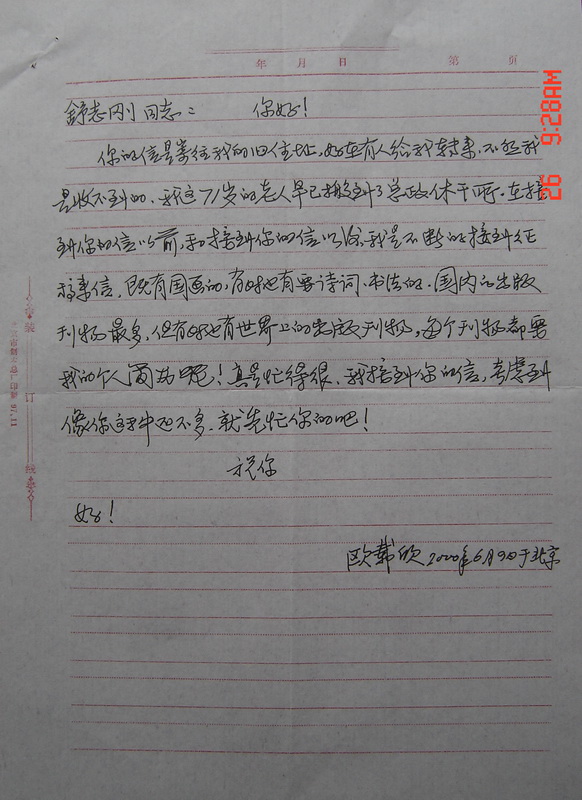 年 月 日 第 页
舒志刚同志： 你好！
你的信是寄往我的旧住址，好在有人给我转来，不然我
是收不到的。我这71岁的老人早已搬到了总政休干所。在接
到你的信以前，和接到你的信以后，我是不断的接到征
稿来信，既有国画的，有时也有要诗词、书法的。国内的出版
刊物最多，但有时也有世界上的出版刊物，每个刊物都要
我的个人简历呢！真是忙得很。我接到你的信，考虑到
像你这种还不多，就先忙你的吧！
祝你
好！
欧 欣 2000年6月9日于北京
装
订
线
97.11
26 9:28AM